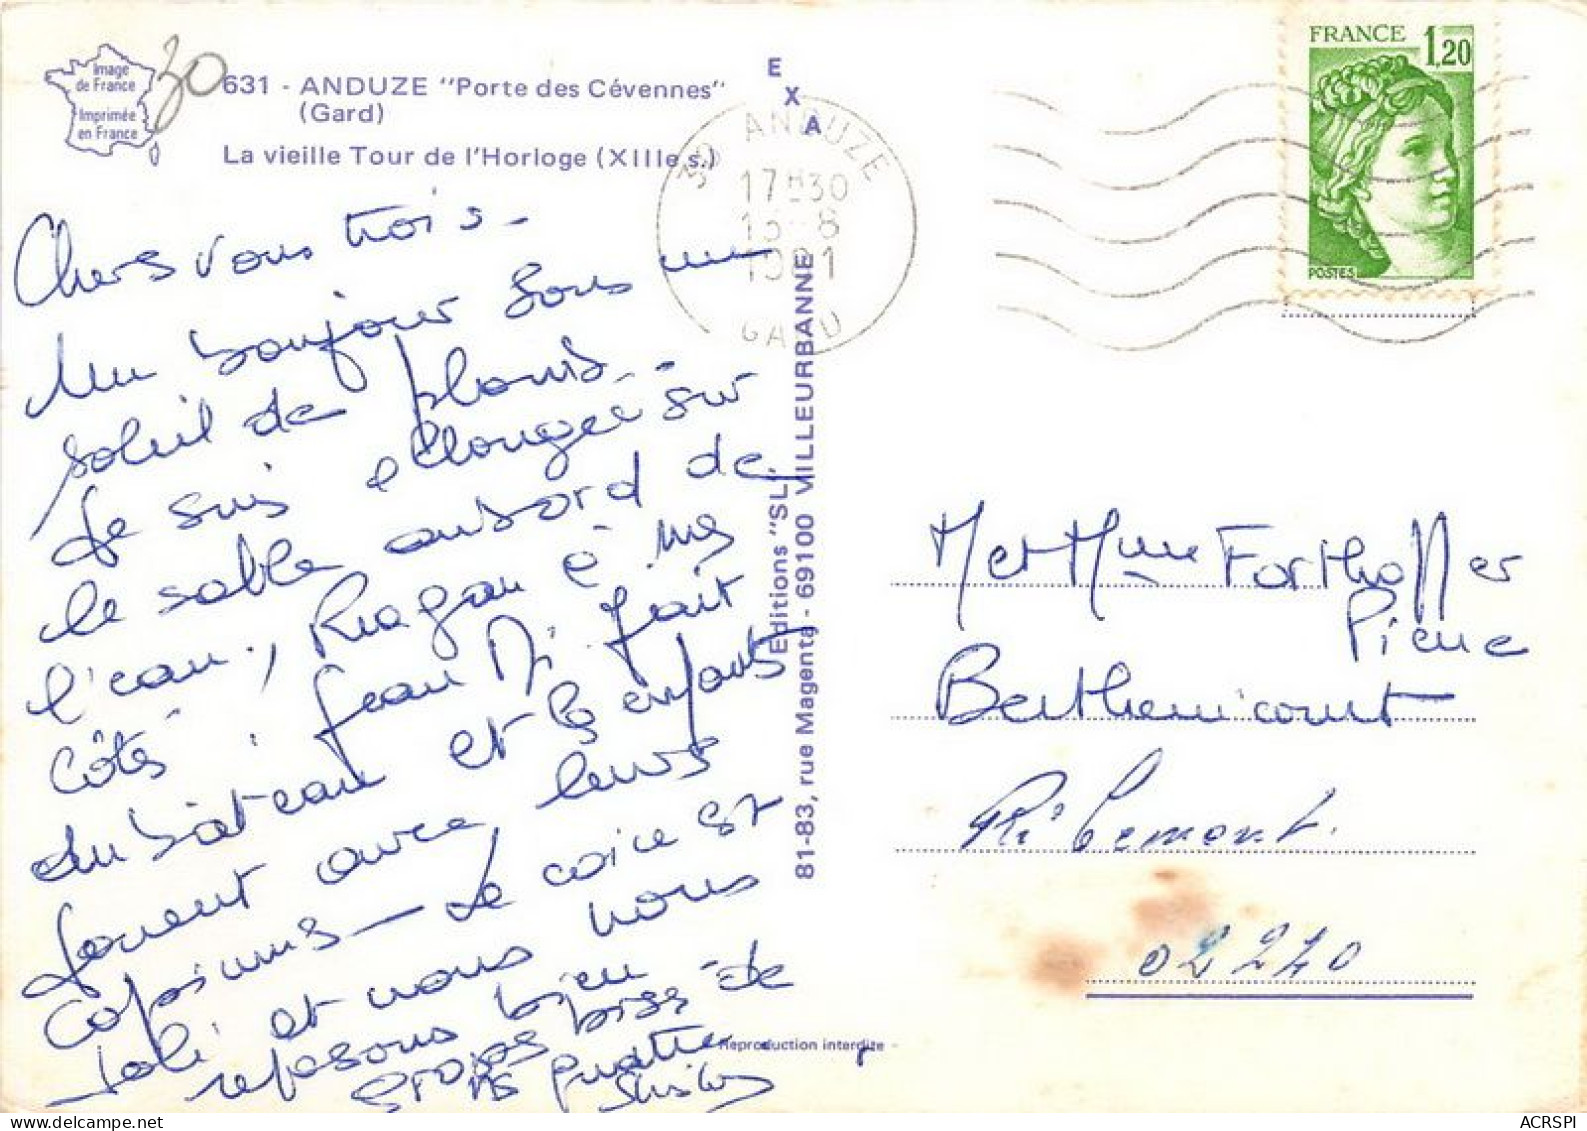 Image
de France
Imprimée
en France
30
631 - ANDUZE "Porte des Cévennes"
(Gard)
La vieille Tour de l'Horloge (XIIIe s.)
E
X
A
30 ANDUZE
17H30
13 8
1981
GARD
FRANCE 1,20
POSTES
Chers vous trois -
Un bonjour sous un
soleil de plomb - -
Je suis allongée sur
le sable au bord de
l'eau, à mes
côté : Jean M. fait
du bâteau et les enfants
jouent avec leurs
copains - Le coin est
joli et nous nous
reposons bien
grosses bises de
ns quatre
Editions "SL"
81-83, rue Magenta - 69100 VILLEURBANNE
Reproduction interdite
M et Mme Forthoffer
Pierre
Berthenicourt
Ribemont.
02240
ACRSPI